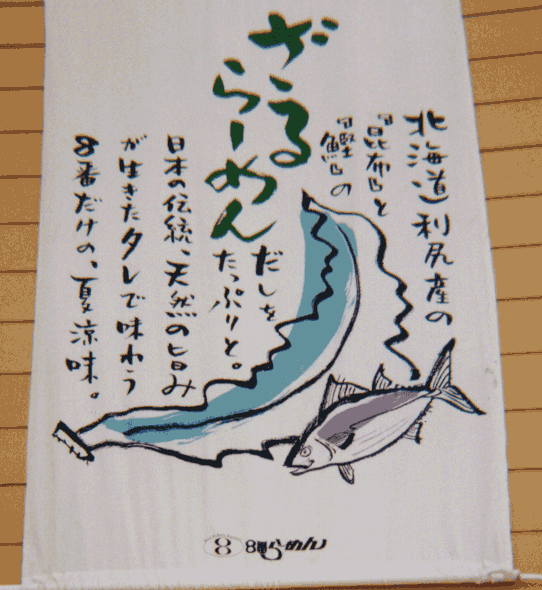 ざるらーめん
北海道利尻産の
『昆布』と
『鰹』の
だしを
たっぷりと。
日本の伝統、天然の旨み
が生きたタレで味わう
8番だけの、夏涼味。
8番らーめん